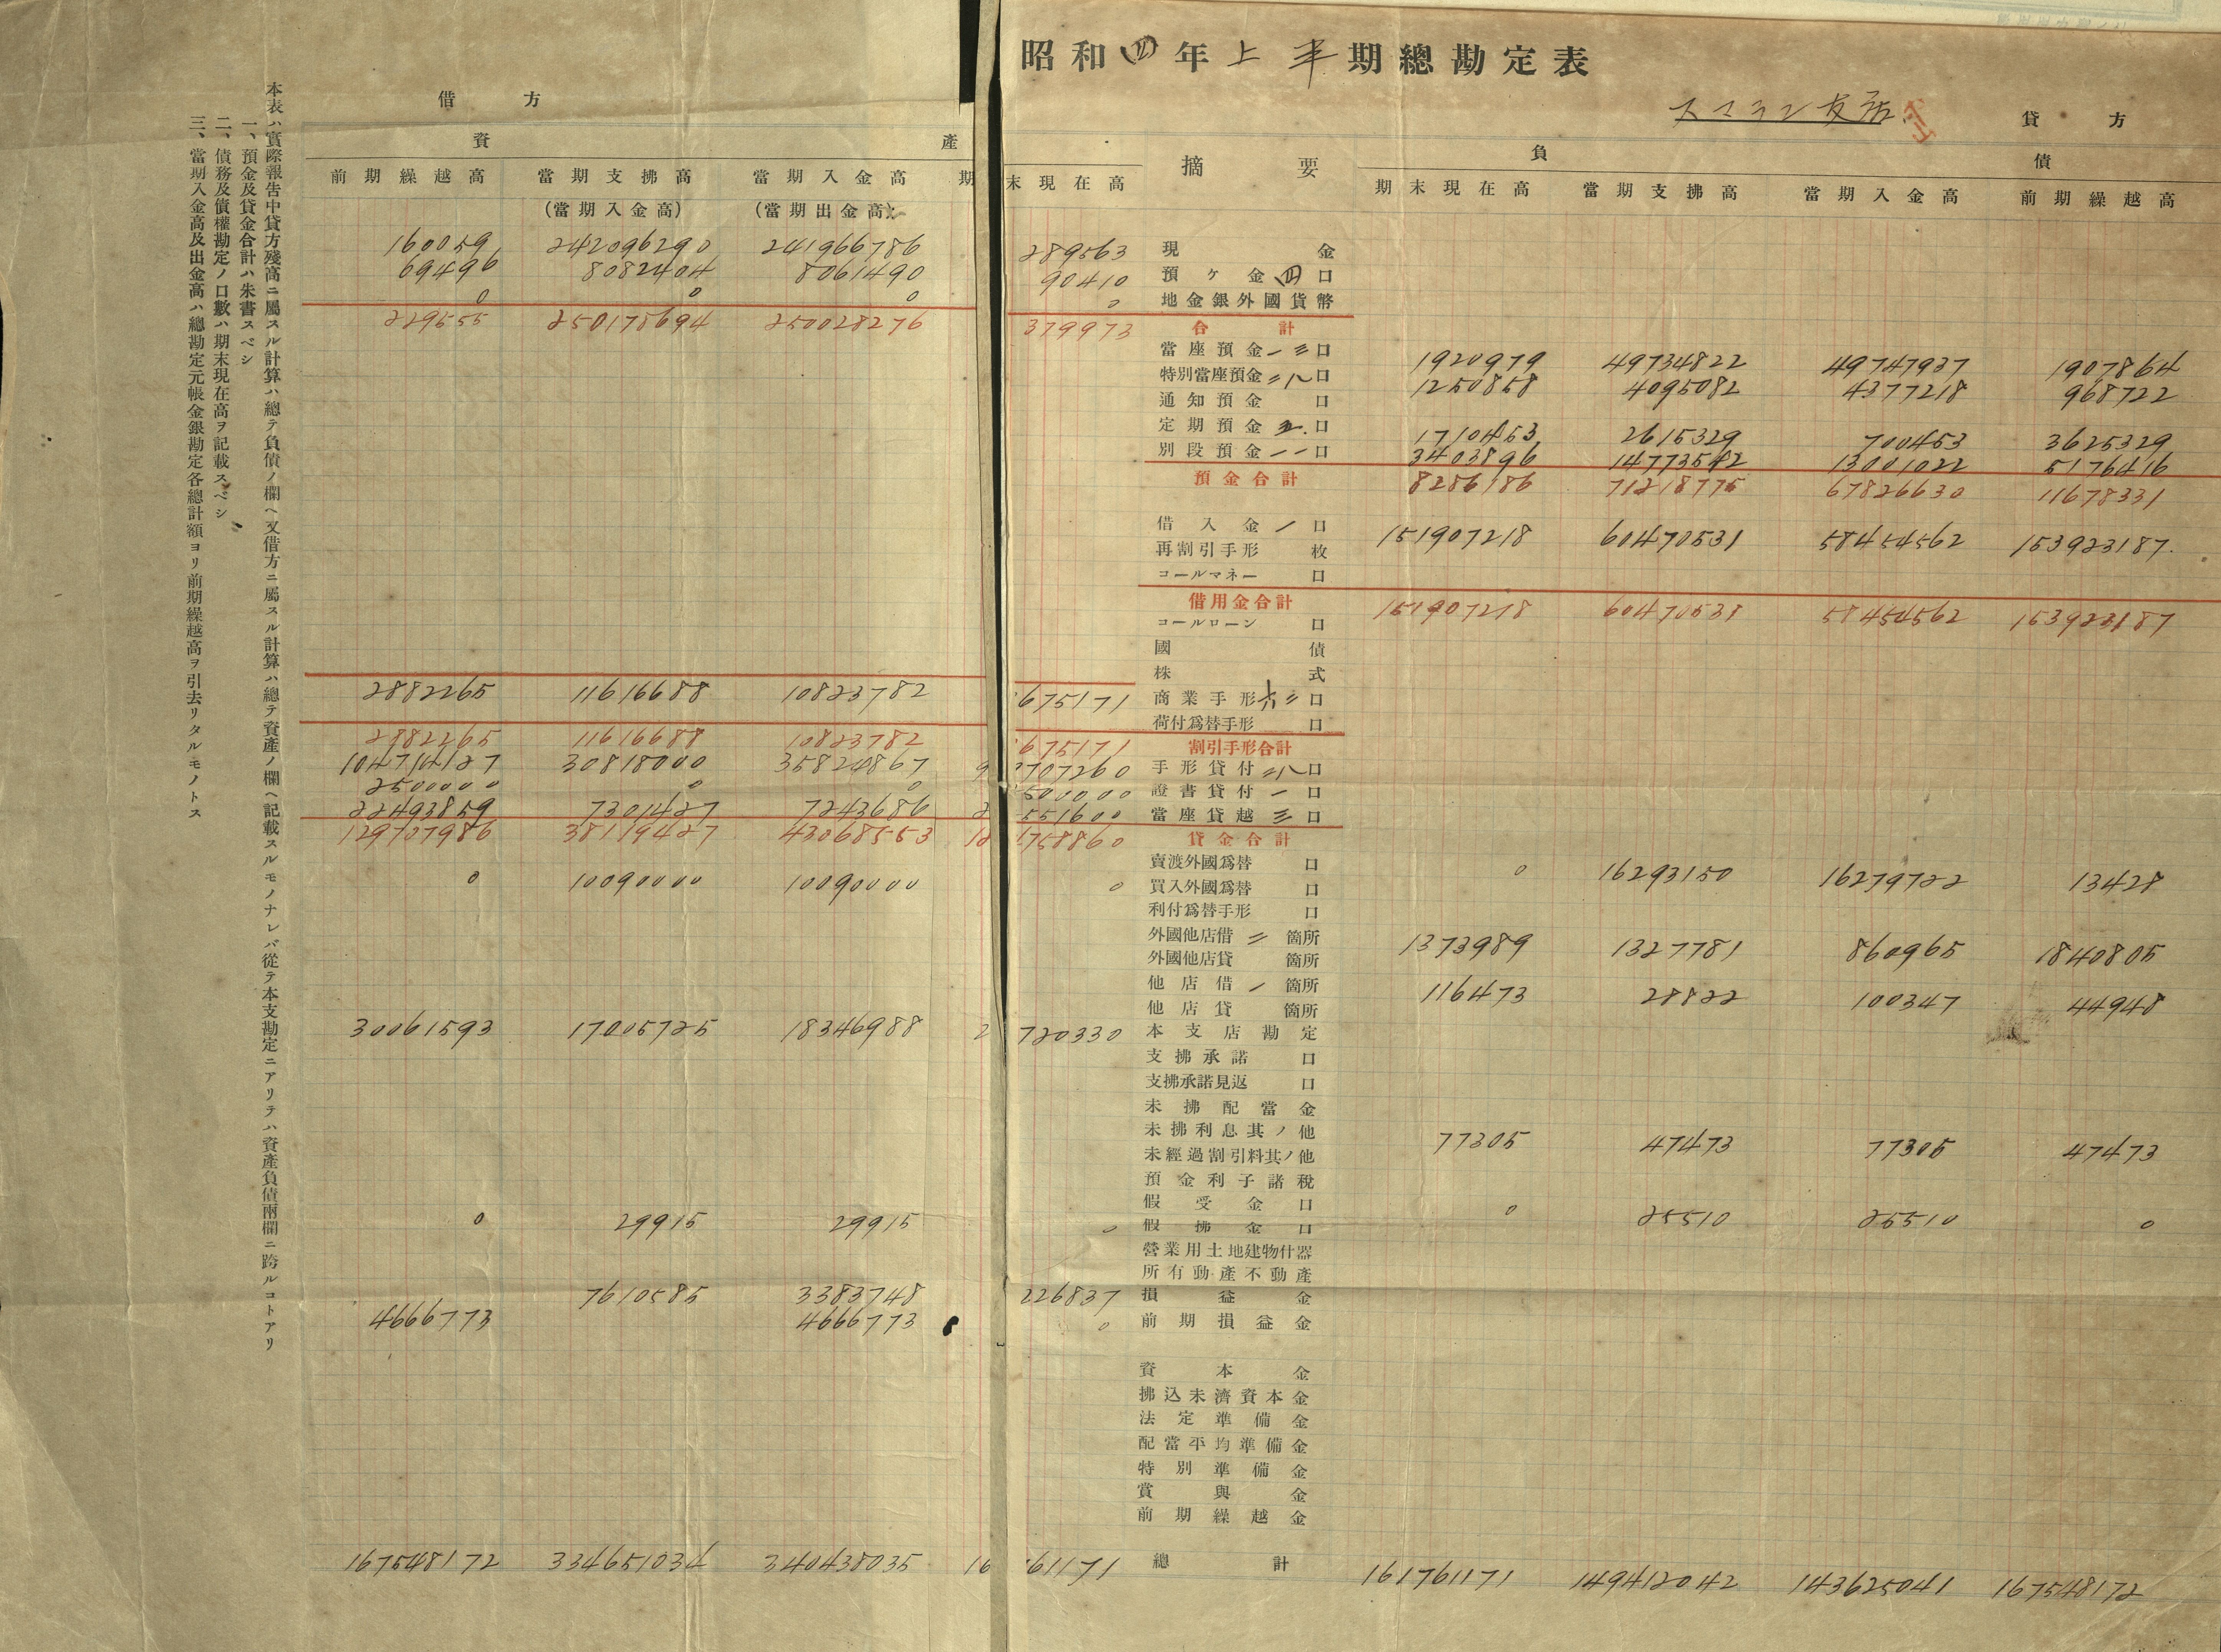 昭和四年上半期總勘定表
スマラン支店
借方
貸方
資產
摘要
負債
前期繰越高 當期支拂高 當期入金高 期末現在高 期末現在高 當期支拂高 當期入金高 前期繰越高
(當期入金高) (當期出金高)
160059 242096290 241966786 289563 現金
69496 8082404 8061490 90410 預ヶ金四口
0 0 0 0 地金銀外國貨幣
229555 250178694 250028276 379973 合計
當座預金一三口 1920979 49734822 49747937 1907864
特別當座預金二八口 1250858 4095082 4377218 968722
通知預金口
定期預金五口 1710453 2615329 700453 3625329
別段預金一一口 3403896 14773542 13001022 5176416
預金合計 8286186 71218775 67826630 11678331
借入金一口 151907218 60470531 58454562 153923187
再割引手形枚
コールマネー口
借用金合計 151907218 60470531 58454562 153923187
コールローン口
國債
株式
2882265 11616688 10823782 675171 商業手形六二口
荷付爲替手形口
2882265 11616688 10823782 675171 割引手形合計
104714127 30818000 35824867 9 707260 手形貸付二八口
2500000 0 0 500000 證書貸付一口
22493859 7301427 7243686 2 551600 當座貸越三口
129707986 38119427 43068553 12 758860 貸金合計
賣渡外國爲替口 0 16293150 16279722 13428
0 10090000 10090000 0 買入外國爲替口
利付爲替手形口
外國他店借二箇所 1373989 1327781 860965 1840805
外國他店貸箇所
他店借一箇所 116473 28822 100347 44948
他店貸箇所
30061593 17005725 18346988 2 720330 本支店勘定
支拂承諾口
支拂承諾見返口
未拂配當金
未拂利息其ノ他 77305 47473 77305 47473
未經過割引料其ノ他
預金利子諸稅
假受金口 0 25510 25510 0
0 29915 29915 0 假拂金口
營業用土地建物什器
所有動產不動產
7610585 3383748 226837 損益金
4666773 4666773 0 前期損益金
資本金
拂込未濟資本金
法定準備金
配當平均準備金
特別準備金
賞與金
前期繰越金
167548172 334651034 340438035 16 61171 總計 161761171 149412042 143625041 167548172
本表ハ實際報告中貸方殘高ニ屬スル計算ハ總テ負債ノ欄ヘ又借方ニ屬スル計算ハ總テ資產ノ欄ヘ記載スルモノナレバ從テ本支勘定ニアリテハ資產負債兩欄ニ跨ルコトアリ
一、預金及貸金合計ハ朱書スベシ
二、債務及債權勘定ノ口數ハ期末現在高ヲ記載スベシ
三、當期入金高及出金高ハ總勘定元帳金銀勘定各總計額ヨリ前期繰越高ヲ引去リタルモノトス